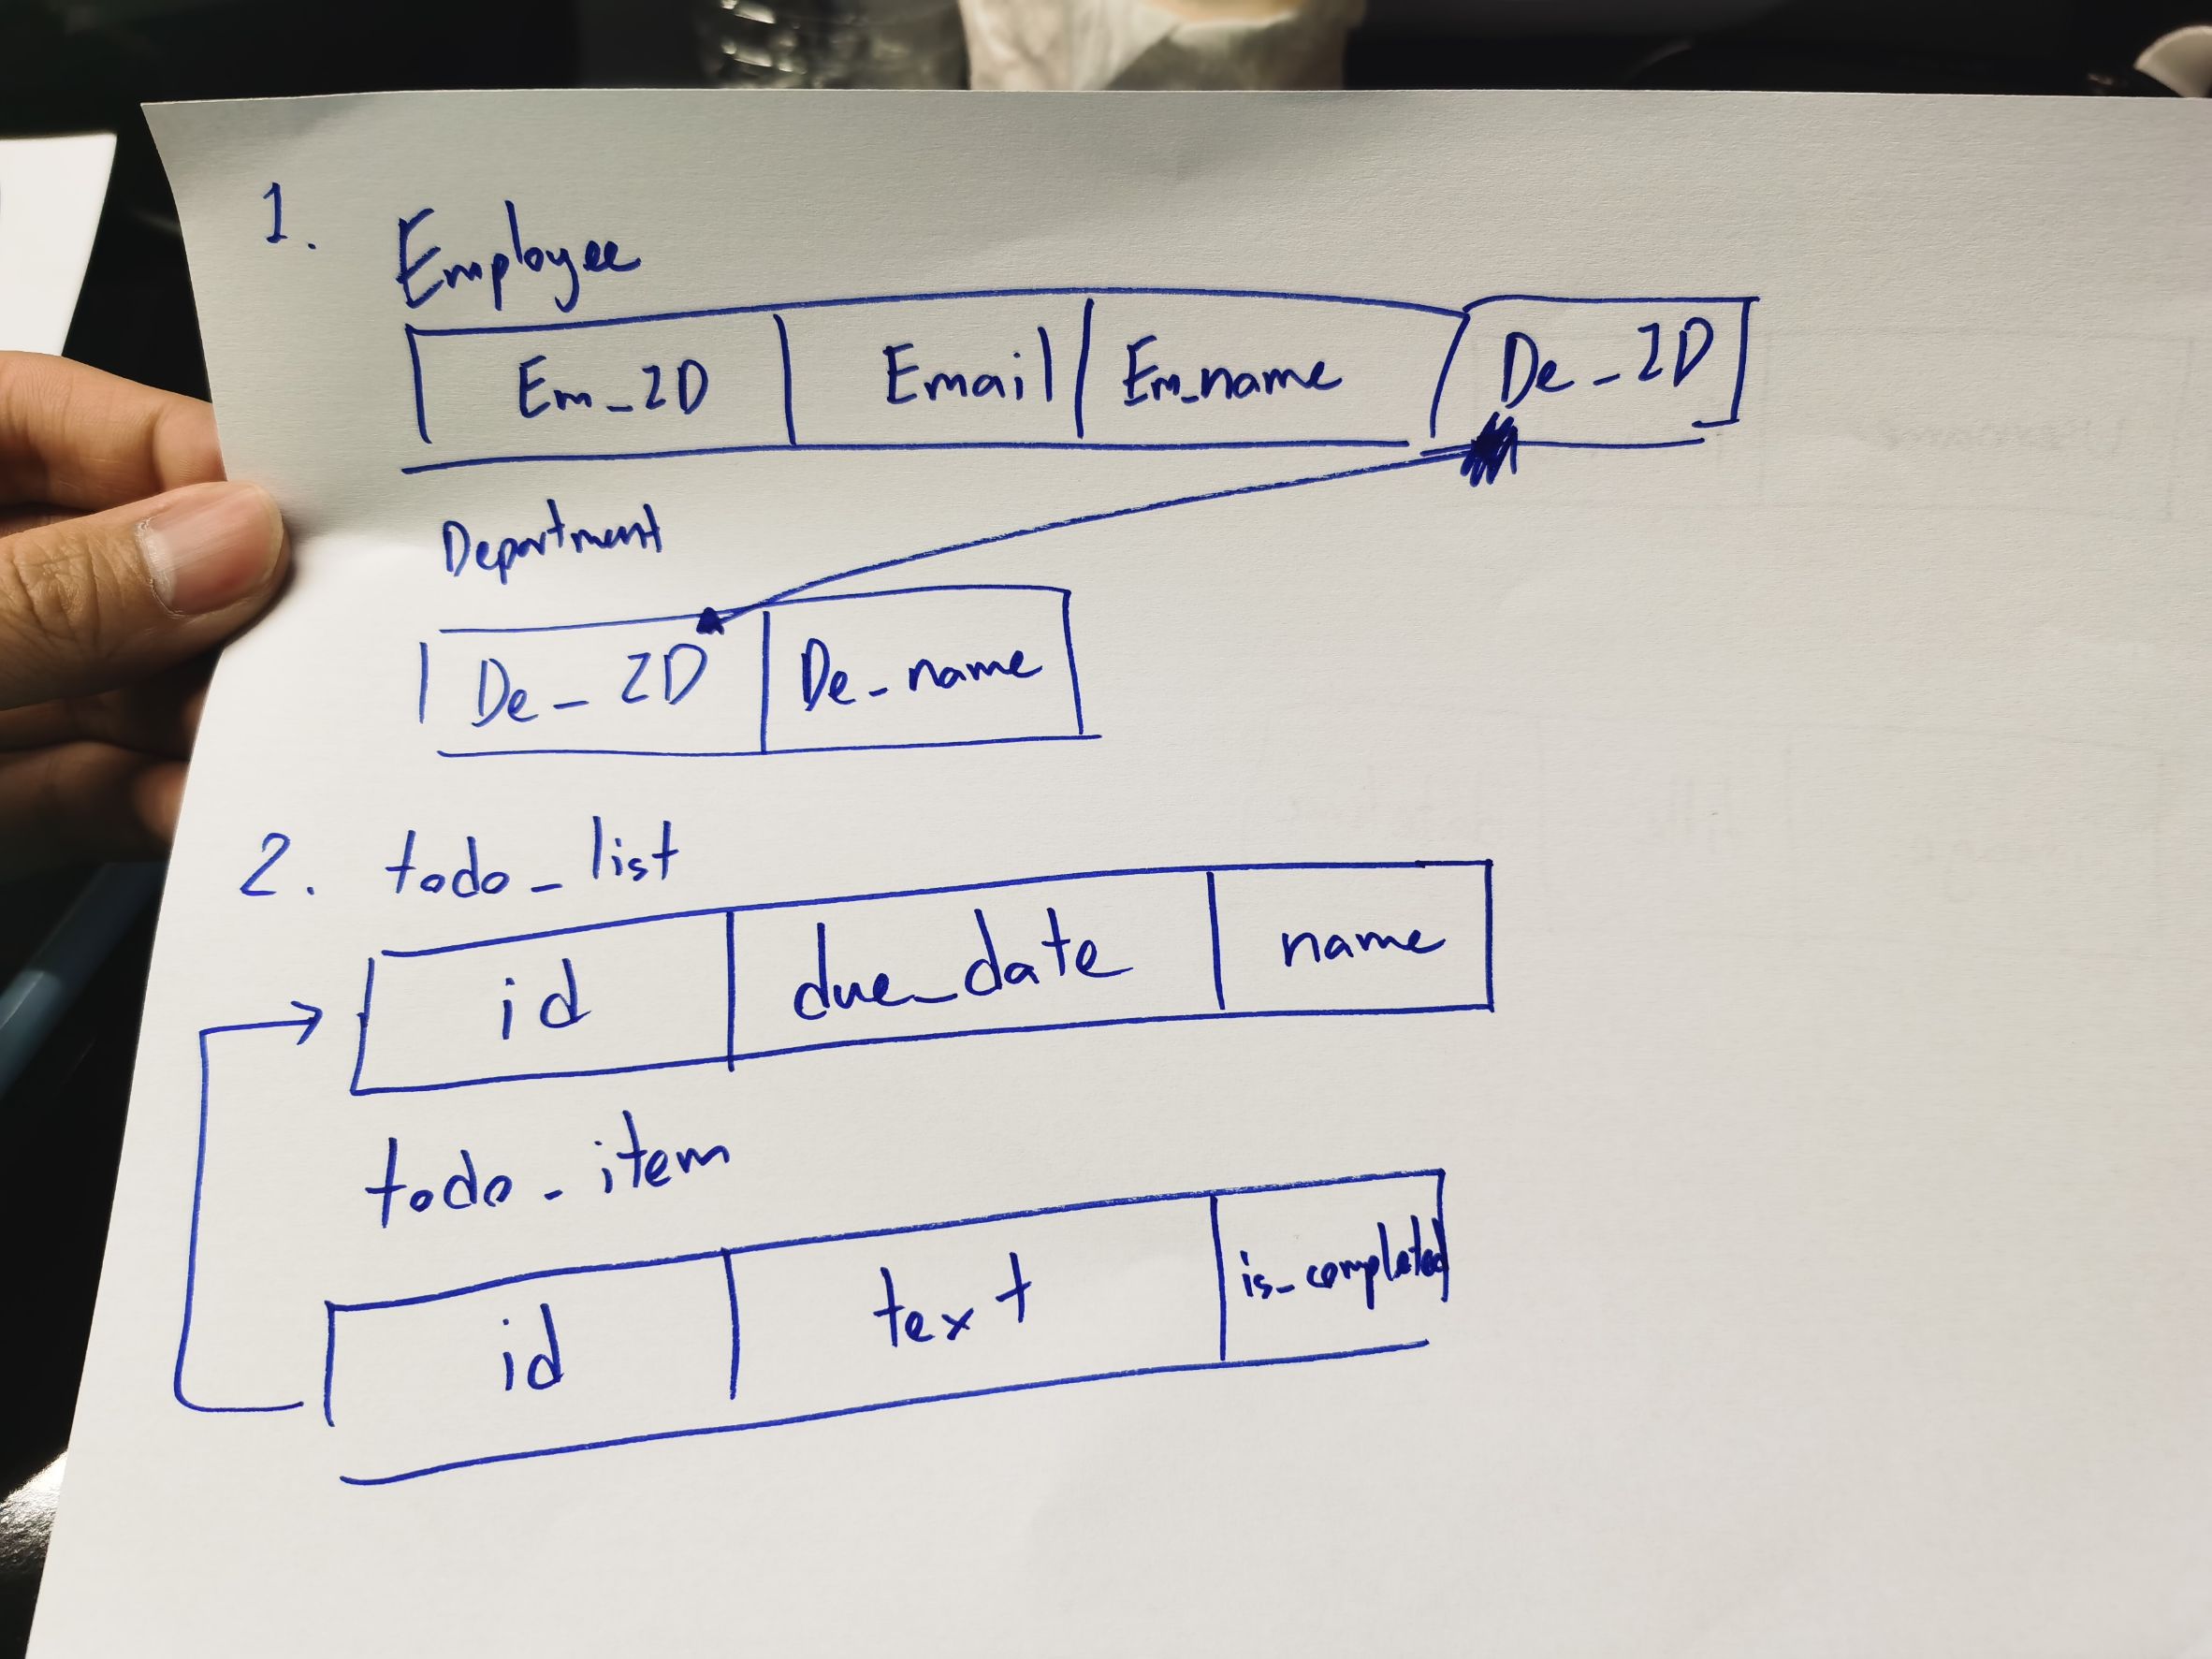 1.
Employee
Em_ID Email En_name De_ID
Department
De_ID De_name
2. todo_list
id due_date name
todo_item
id text is_completed